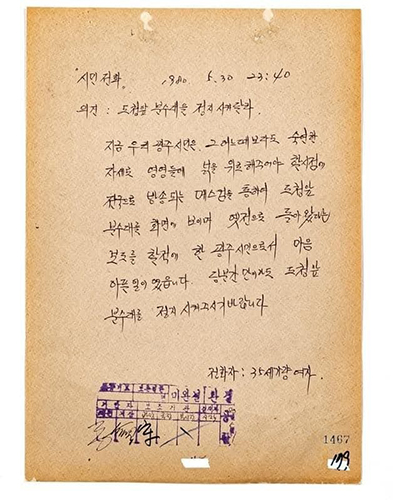 시민전화. 1980 5.30 23:40
의견 : 도청앞 분수대를 정지시켜달라.
지금 우리 광주시민은 그 어느때보다도 숙연한
자세로 영령들에 넋을 위로해주어야 할 시점에
전국으로 방송되는 매스컴을 통하여 도청앞
분수대를 화면에 보이며 옛전으로 돌아왔다는
보도를 할적에 한 광주시민으로서 마음
아픈일이 였읍니다. 단이라도 도청앞
분수대를 정지시켜주시기 바랍니다
전화자 : 35세가량 여자.
미완결 완결
1467
179